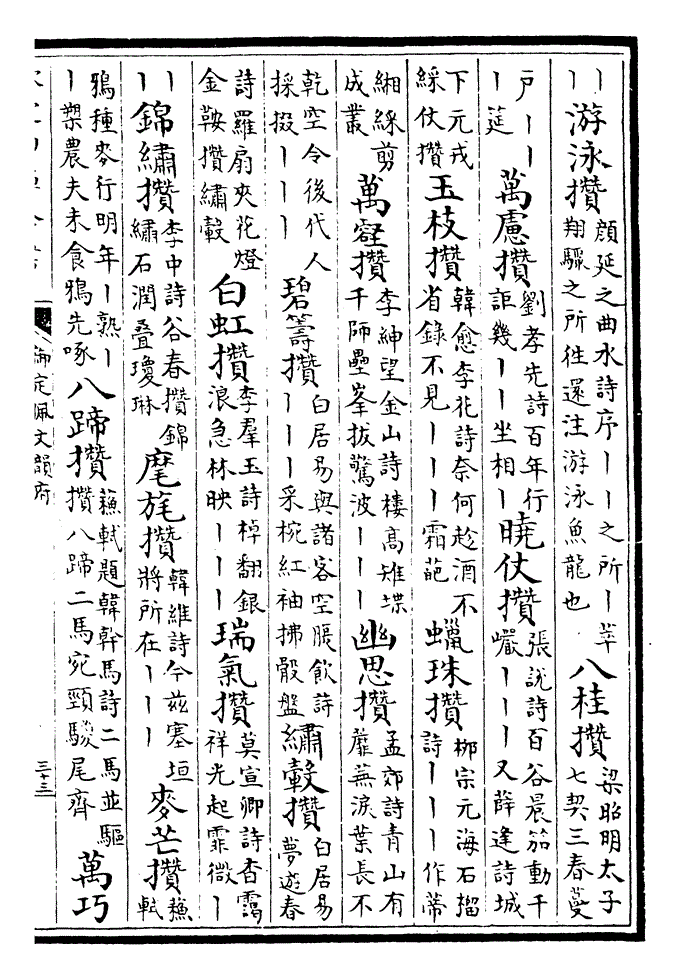 丨丨游泳攢顏延之曲水詩序丨丨之所丨萃翔驟之所往還注游泳魚龍也八桂攢梁昭明太子七契三春蔓
戶丨丨丨筵萬慮攢劉孝先詩百年行詎幾丨丨坐相丨曉仗攢張說詩百谷晨笳動千巘丨丨丨又薛逢詩城
下元戎綵仗攢玉枝攢韓愈李花詩奈何趁酒不省錄不見丨丨丨霜葩蠟珠攢柳宗元海石榴詩丨丨丨作蒂
緗綵剪成叢萬壑攢李紳望金山詩樓高雉堞千師壘峯拔驚波丨丨丨幽思攢孟郊詩青山有蘼蕪淚葉長不
乾空令後代人採掇丨丨丨碧籌攢白居易與諸客空腹飲詩丨丨丨采椀紅袖拂骰盤繡轂攢白居易夢遊春
詩羅扇夾花燈金鞍攢繡轂白虹攢李羣玉詩棹翻銀浪急林映丨丨丨瑞氣攢莫宣卿詩杳靄祥光起霏微丨
丨丨錦繡攢李中詩谷春攢錦繡石潤叠瓊琳麾旄攢韓維詩今茲塞垣將所在丨丨丨麥芒攢蘇軾
鴉種麥行明年丨熟丨丨槊農夫未食鴉先啄八蹄攢蘇軾題韓幹馬詩二馬並驅攢八蹄二馬宛頸騣尾齊萬巧
御定佩文韻府
三十三